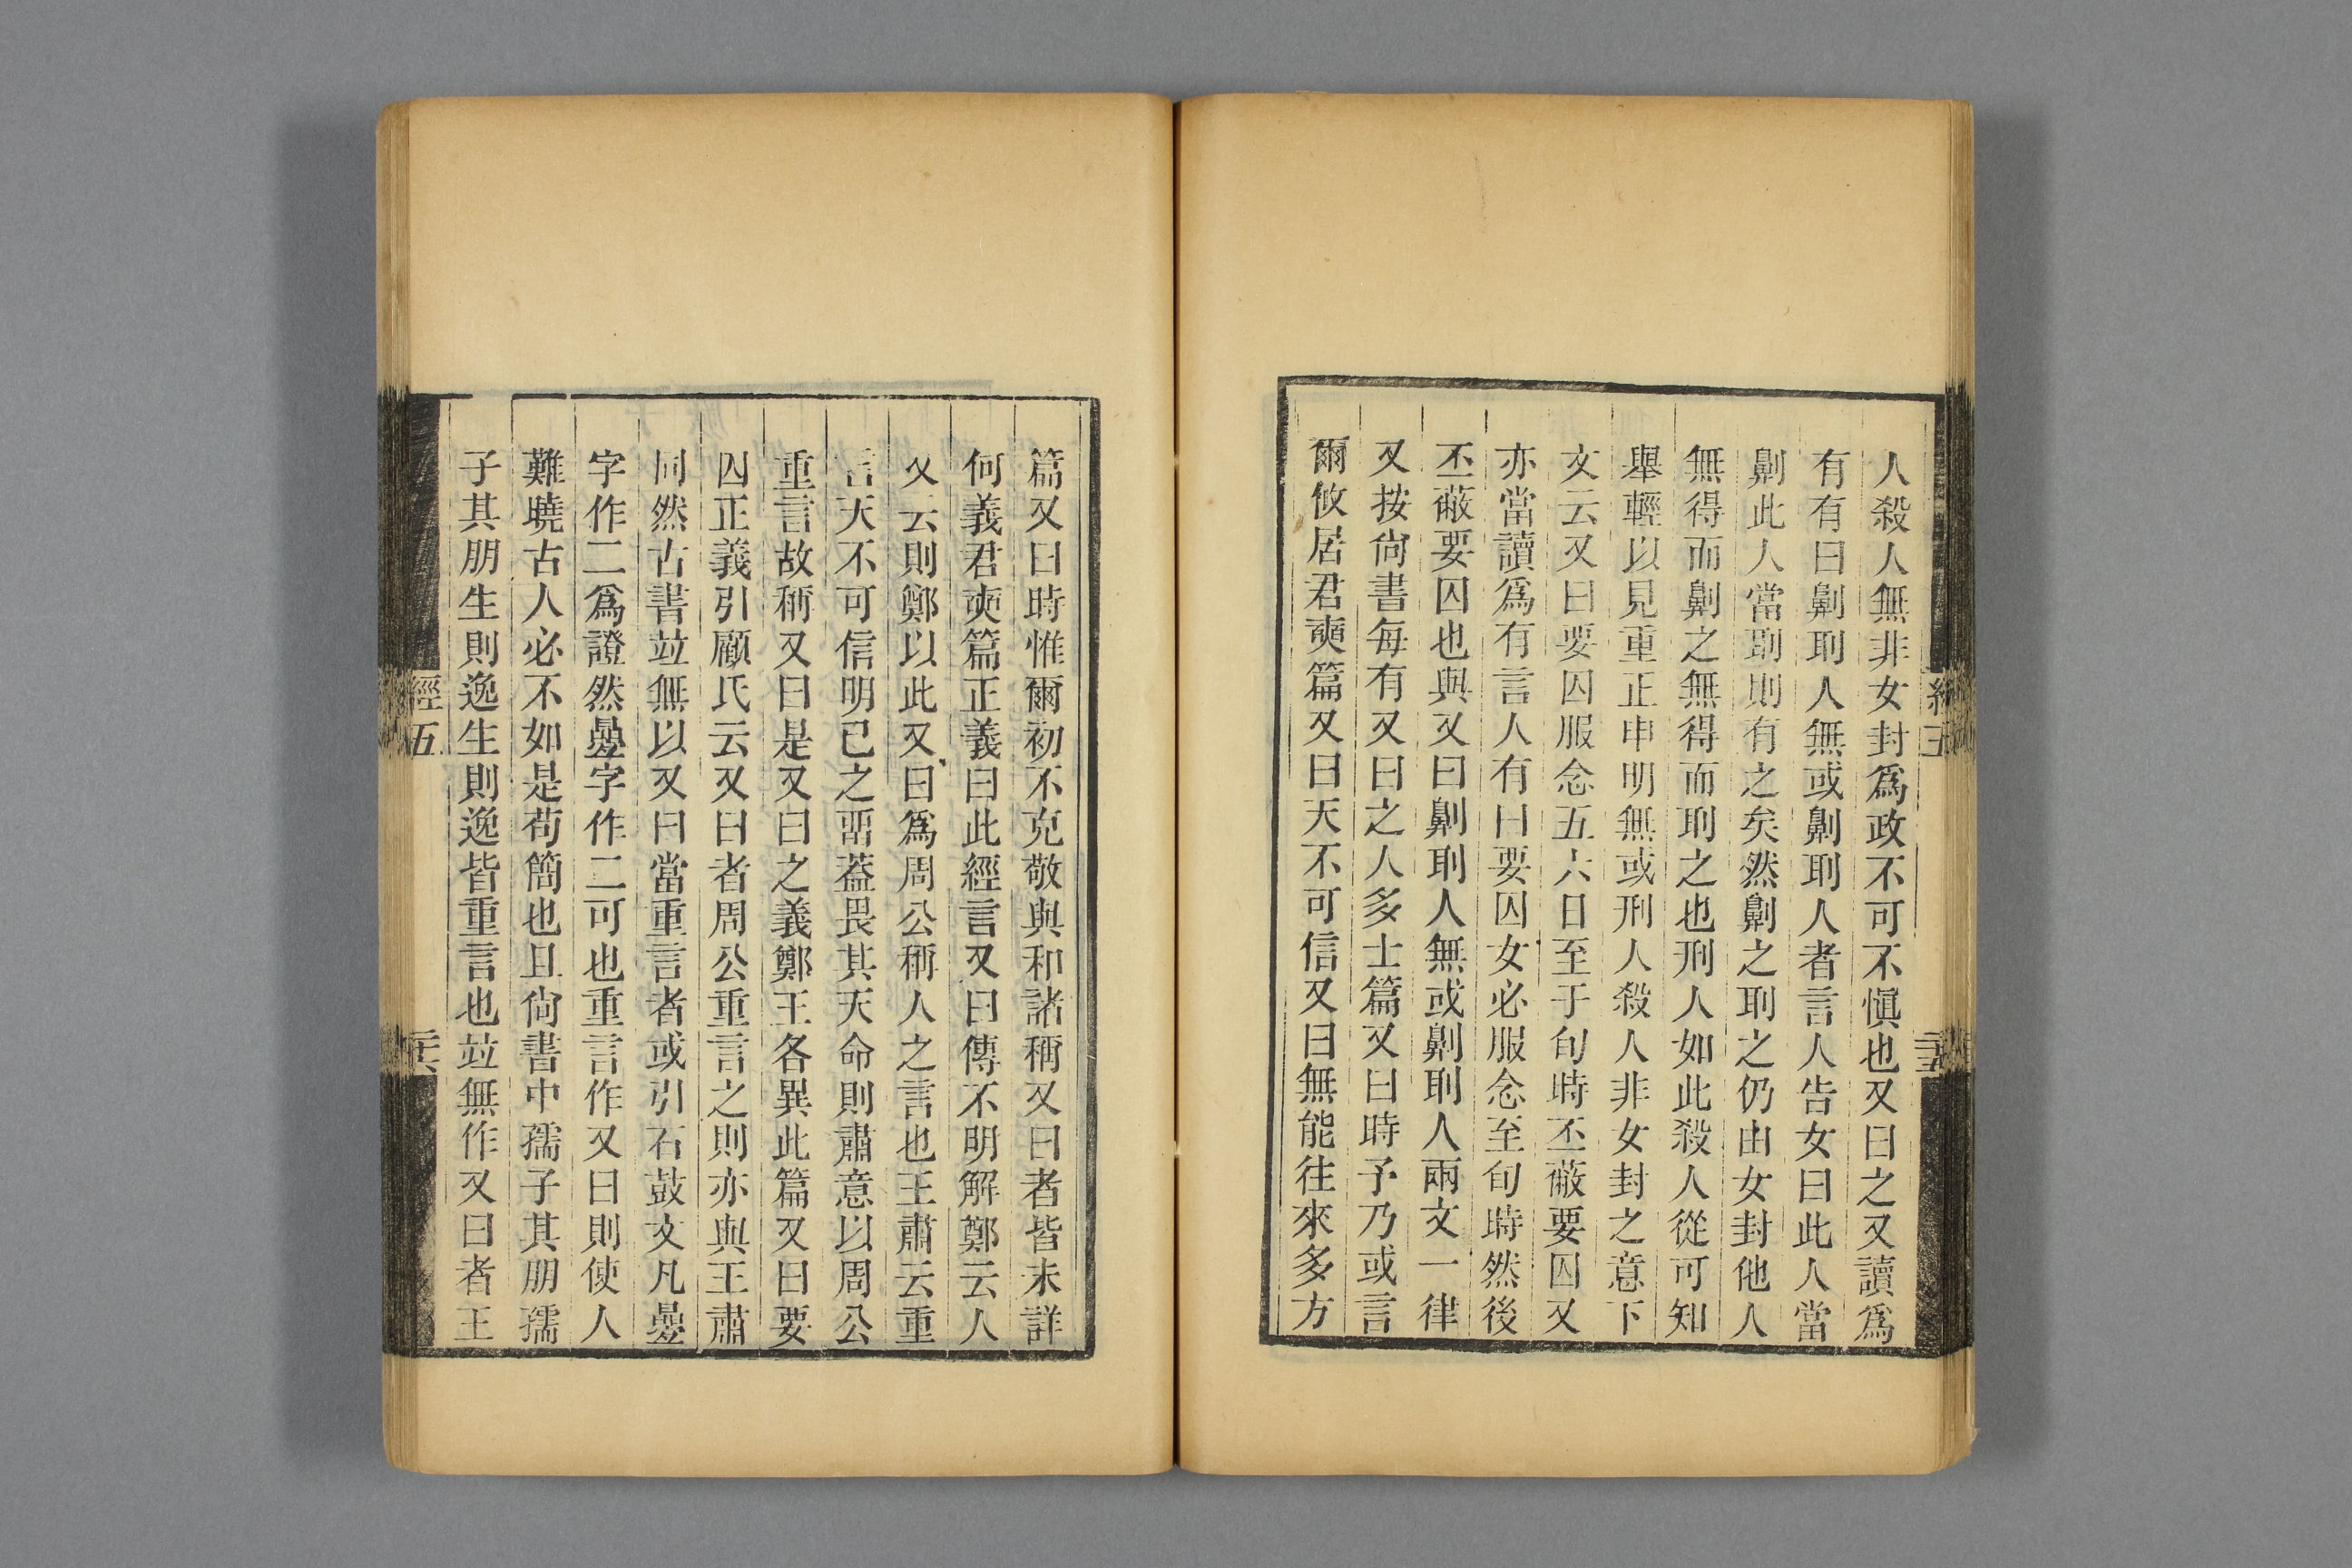 人殺人無非女封爲政不可不愼也又曰之又讀爲
有有曰劓刵人無或劓刵人者言人告女曰此人當
劓此人當刵則有之矣然劓之刵之仍由女封他人
無得而劓之無得而刵之也刑人如此殺人從可知
舉輕以見重正申明無或刑人殺人非女封之意下
文云又曰要囚服念五六日至于旬時丕蔽要囚又
亦當讀爲有言人有曰要囚女必服念至旬時然後
丕蔽要囚也與又曰劓刵人無或劓刵人兩文一律
又按尙書每有又曰之人多士篇又曰時予乃或言
爾攸居君奭篇又曰天不可信又曰無能往來多方
經五
篇又曰時惟爾初不克敬與和諸稱又曰者皆未詳
何義君奭篇正義曰此經言又曰傳不明解鄭云人
又云則鄭以此又曰爲周公稱人之言也王肅云重
言天不可信明己之畱葢畏其天命則肅意以周公
重言故稱又曰是又曰之義鄭王各異此篇又曰要
囚正義引顧氏云又曰者周公重言之則亦與王肅
同然古書竝無以又曰當重言者或引石鼓文凡疊
字作二爲證然疊字作二可也重言作又曰則使人
難曉古人必不如是苟簡也且尙書中孺子其朋孺
子其朋生則逸生則逸皆重言也竝無作又曰者王
經五